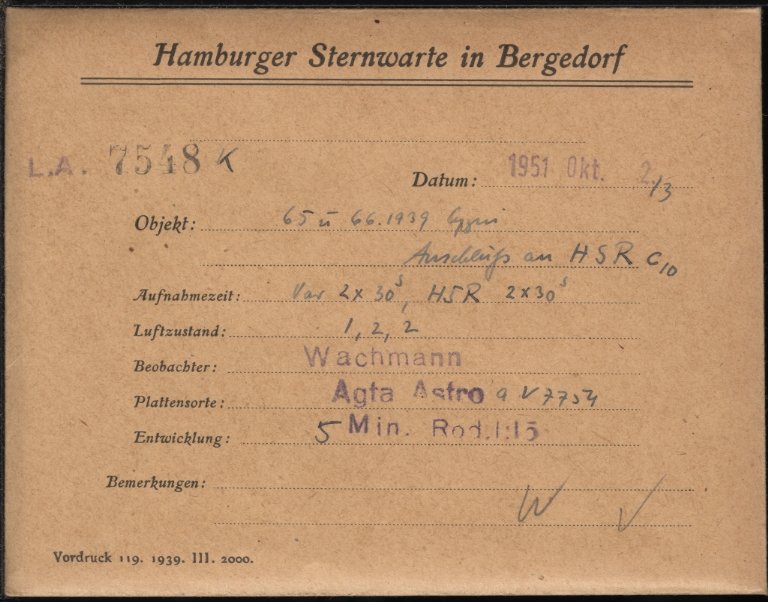 Hamburger Sternwarte in Bergedorf
L.A. 7548 K
Datum: 1951 Okt. 2/3
Objekt: 65 u 66.1939 Cygni
Anschluß an HSR C10
Aufnahmezeit: Var 2x30s, HSR 2x30s
Luftzustand: 1, 2, 2
Beobachter: Wachmann
Plattensorte: Agfa Astro a V7754
Entwicklung: 5 Min. Rod. 1:15
Bemerkungen:
W √
Vordruck 119. 1939. III. 2000.